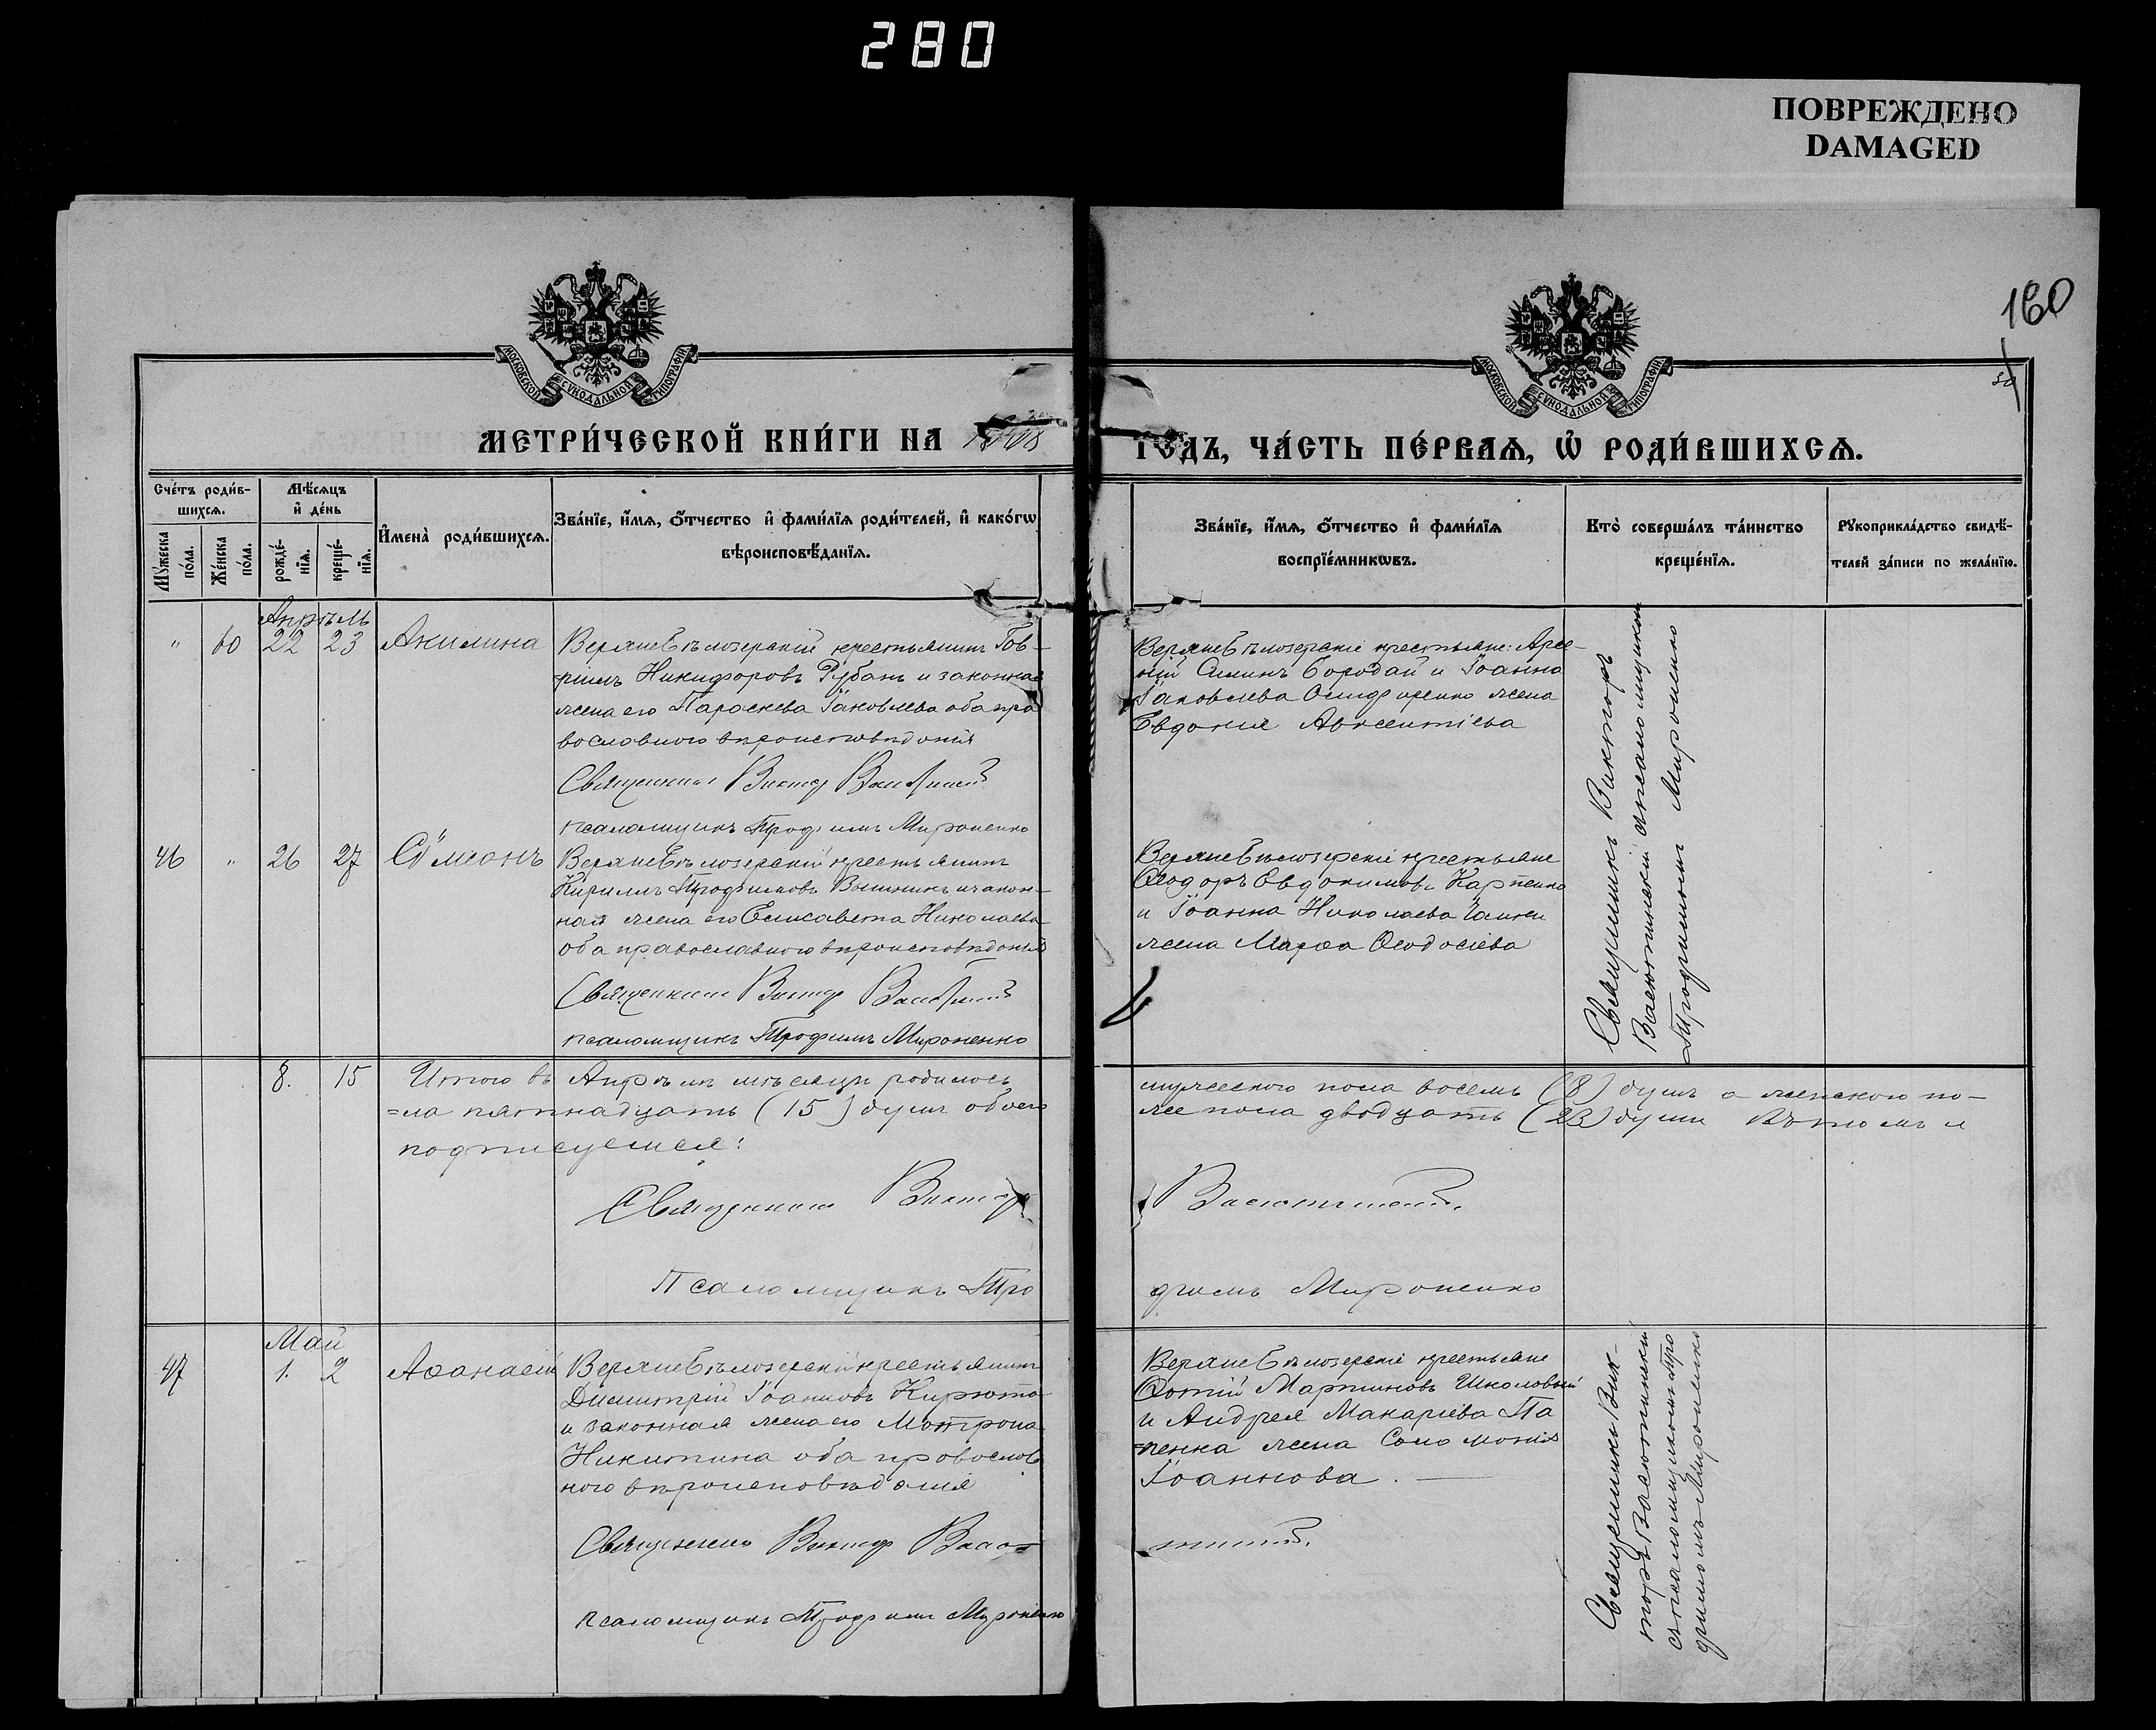 280
ПОВРЕЖДЕНО
DAMAGED
160
МОСКОВСКОЙ СѴНОДАЛЬНОЙ ТИПОГРАФІИ
МОСКОВСКОЙ СѴНОДАЛЬНОЙ ТИПОГРАФІИ
МЕТРИ́ЧЕСКОЙ КНИ́ГИ НА
ГОДЪ, ЧА́СТЬ ПЕ́РВАѦ, Ѡ҆ РОДИ́ВШИХСѦ.
Сче́тъ роди́в-
шихсѧ.
Мꙋ́жеска по́ла.
Же́нска по́ла.
Мѣ́сѧцъ
и҆ де́нь
рожде́-нїѧ.
креще́-нїѧ.
И҆мена̀ роди́вшихсѧ.
Зва́нїе, и҆́мѧ, ѻ҆́тчество и҆ фами́лїѧ роди́телей, и҆ како́гѡ
вѣроисповѣ́данїѧ.
Зва́нїе, и҆́мѧ, ѻ҆́тчество и҆ фами́лїѧ
воспрїе́мникѡвъ.
Кто̀ соверша́лъ та́инство
креще́нїѧ.
Рꙋкоприкла́дство свидѣ́-
телей за́писи по жела́нїю.
Апрѣль
" 60 22 23 Акилина
Верхнебѣлозерскій крестьянинъ Гав-
ріилъ Никифоровъ Рубанъ и законная
жена его Параскева Іаковлева оба пра
вославного вѣроисповѣданія
Священникъ Викторъ
псаломщикъ Трофимъ Мироненко
Верхнебѣлозерскіе крестьяне: Арсе-
ній Бородай и Іоанна
Іаковлева жена
Евдокия Авксентіева
Священникъ Викторъ
псаломщикомъ
Трофимомъ Мироненко
46 " 26 27 Сѵмеонъ
Верхнебѣлозерскій крестьянинъ
Кириллъ Трофимовъ и закон-
ная жена его Елисавета Николаева
оба православного вѣроисповѣданія
Священникъ Викторъ
псаломщикъ Трофимъ Мироненко
Верхнебѣлозерскіе крестьяне
Ѳеодоръ Евдокимовъ Карпенко
и Іоанна Николаева
жена Марѳа Ѳеодосіева
8. 15 Итого въ Апрѣлѣ мѣсяцѣ родилось
мужеского пола восемь (8) душъ а женского по-
=ла пятнадцать (15) душъ обоего
же пола двадцать (23) души Въ томъ и
подписуемся:
Священникъ Викторъ
Псаломщикъ Тро
фимъ Мироненко
Май
47 1. 2 Аѳанасій
Верхнебѣлозерскій крестьянинъ
Димитрій Іоанновъ Кирюта
и законная жена его Матрона
Никитина оба православ
ного вѣроисповѣданія
Священникъ Викторъ
псаломщикъ Трофимъ Мироненко
Верхнебѣлозерскіе крестьяне
Фотій Мартиновъ Школовый
и Андрея Макаріева Па
=пенка жена Соломонія
Іоаннова.
Священникъ Вик-
торъ
съ псаломщикомъ Тро
фимомъ Мироненко